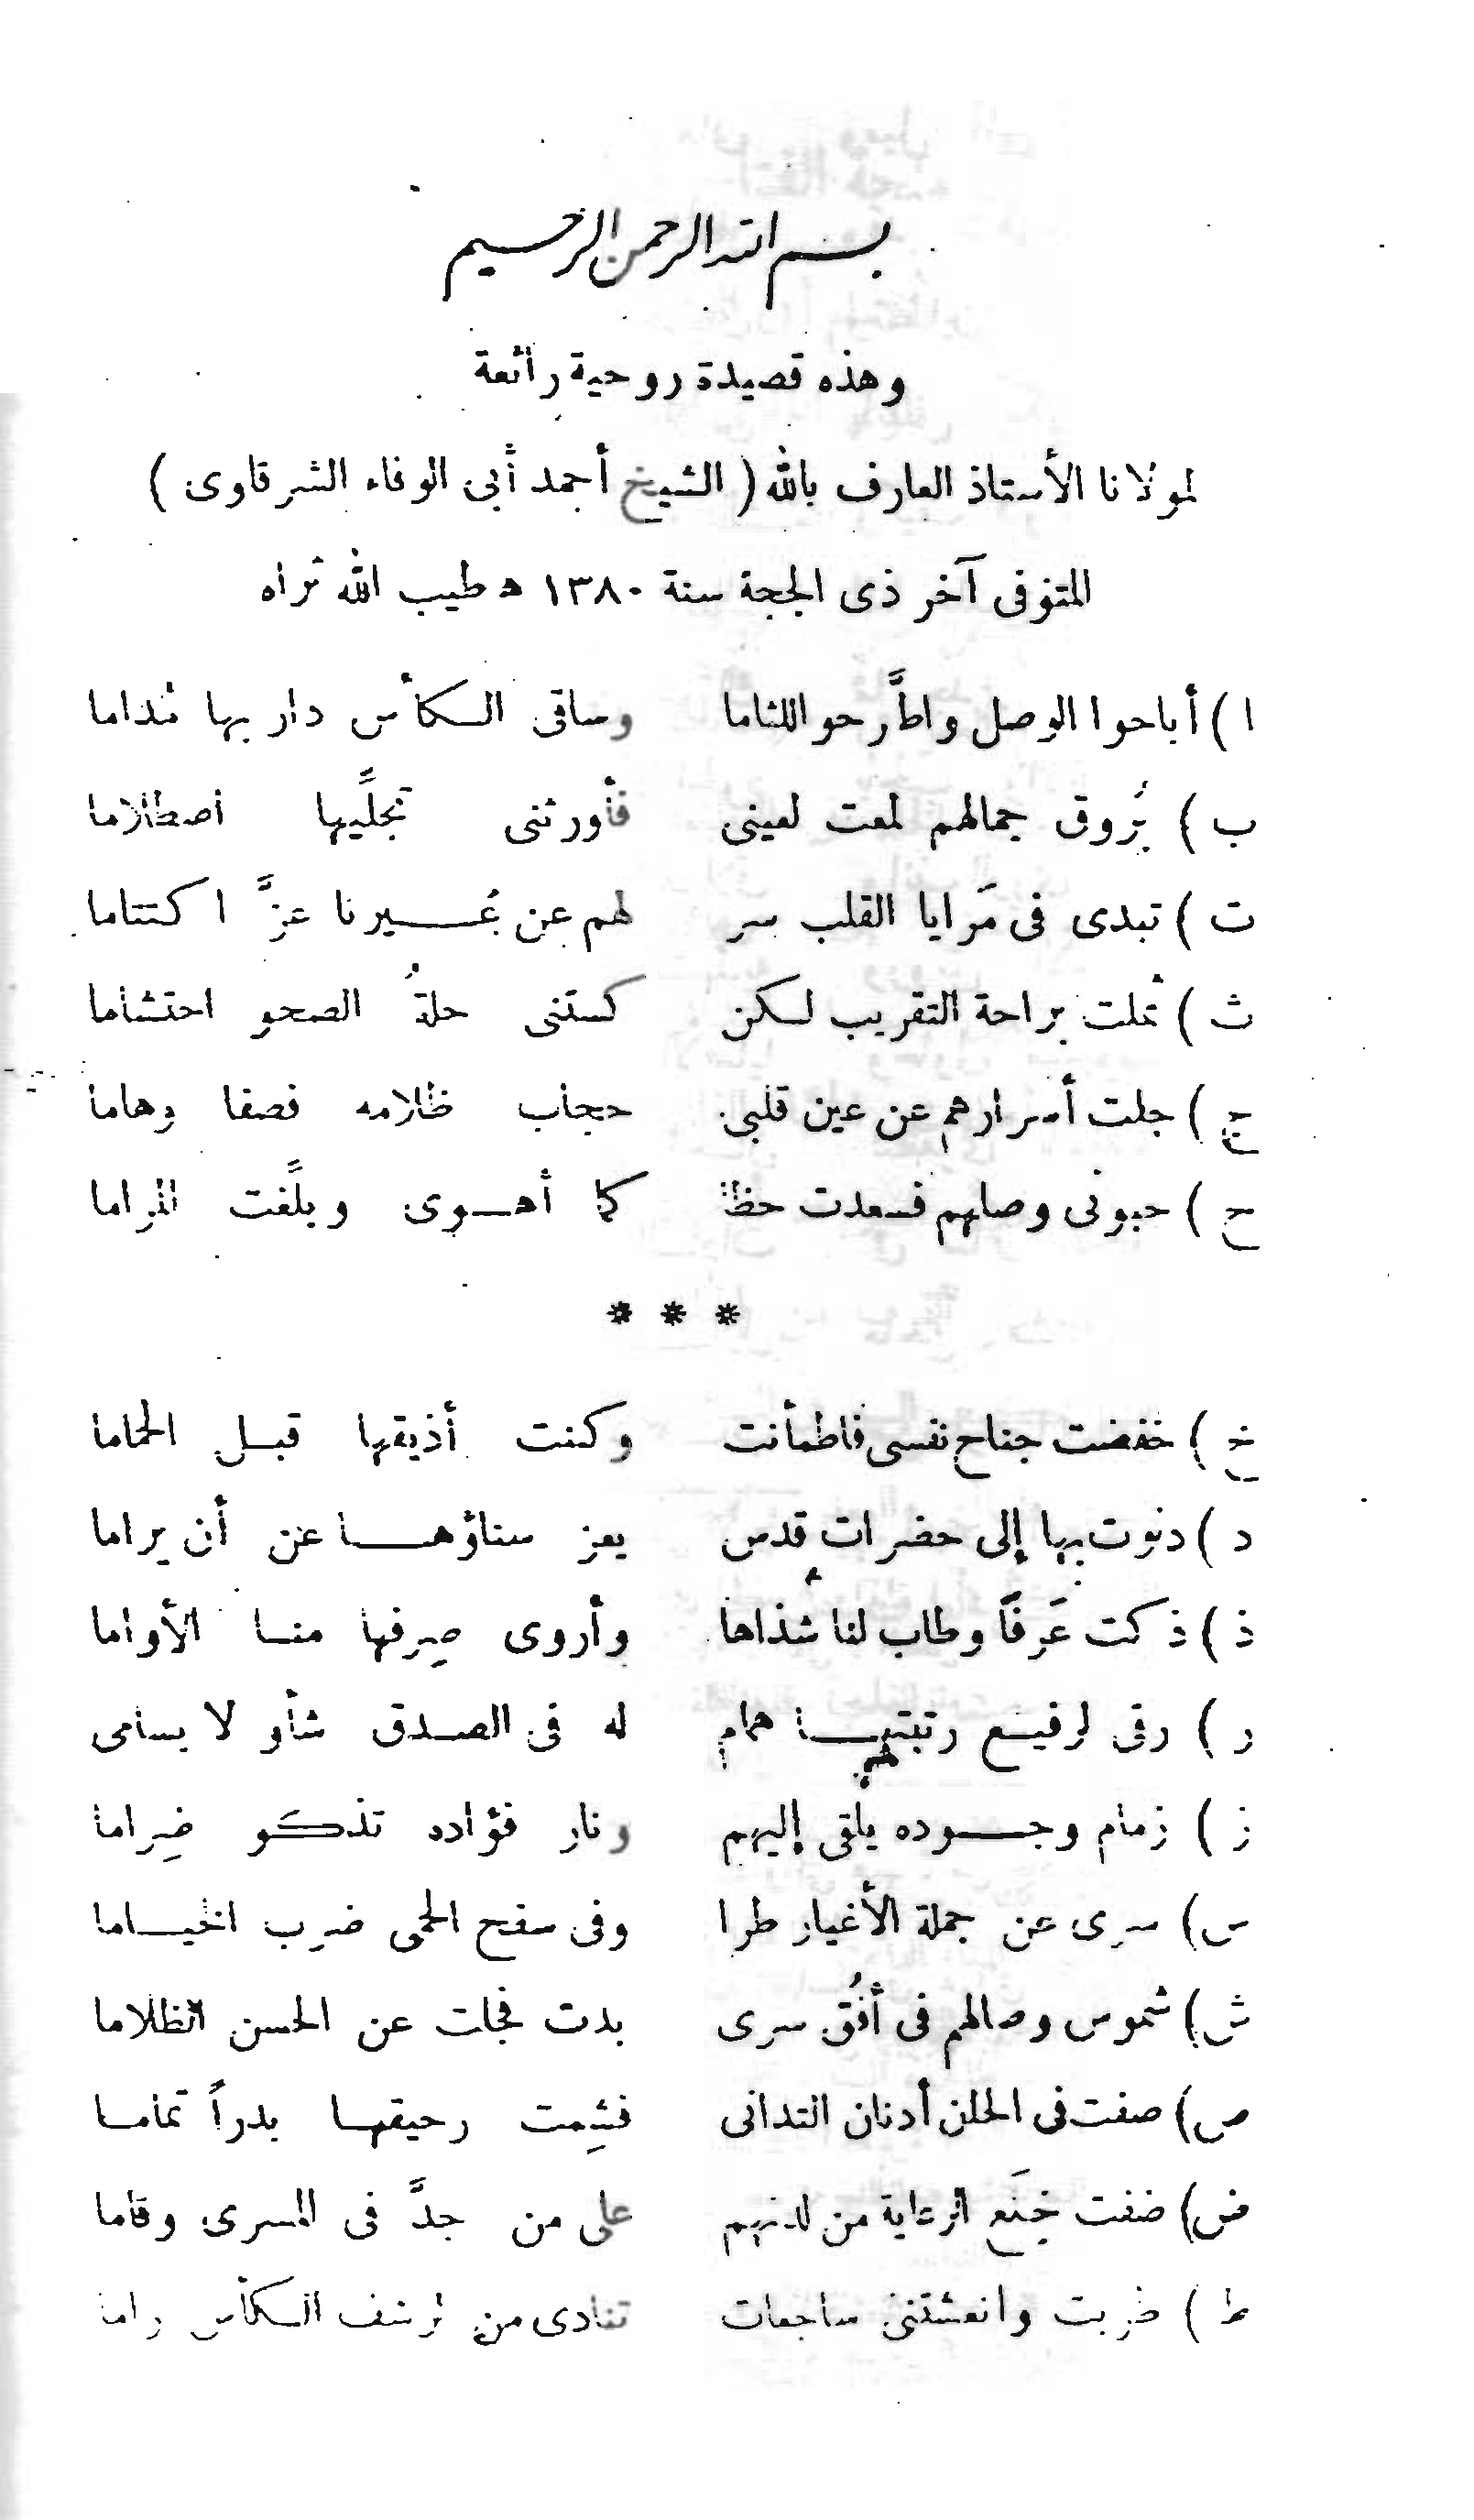 بسم الله الرحمن الرحيم
وهذه قصيدة روحية رائعة
لمولانا الأستاذ العارف بالله ( الشيخ أحمد أبى الوفاء الشرقاوى )
المتوفى آخر ذى الحجة سنة ١٣٨٠ ه طيب الله ثراه
ا ) أباحوا الوصل واطَّرحو اللثاما وساقى الكأس دار بها مُداما
ب ) بُروق جمالهم لمعت لعينى فأورثنى تجلِّيها اصطلاما
ت ) تبدى فى مَرايا القلب سر لهم عن غُيرنا عزَّ اكتتاما
ث ) ثملت براحة التقريب لكن كستنى حلةُ الصحو احتشاما
ج ) جلت أسرارهم عن عين قلبى حجاب ظلامه فصفا وهاما
ح ) حبونى وصلهم فسعدت حظا كما أهوى وبلِّغت المراما
* * *
خ ) خفضت جناح نفسى فاطمأنت وكنت أذيقها قبل الحماما
د ) دنوت بها إلى حضرات قدس يعز سناؤها عن أن يراما
ذ ) ذكت عَرفًا وطاب لنا شذاها وأروى صِرفها منا الأواما
ر ) رقى لرفيع رتبتها همام له فى الصدق شأو لا يسامى
هم
ز ) زمام وجوده يلقى إليهم ونار فؤاده تذكو ضِراما
س) سرى عن جملة الأغيار طرا وفى سفح الحمى ضرب الخياما
ش) شموس وصالهم فى أفُق سرى بدت فجلت عن الحسن الظلاما
ص) صفت فى الحان أدنان التدانى فشِمت رحيقها بدراً تماما
ض) ضفت خِلَع الرعاية من لدنهم على من جدَّ فى المسرى وقاما
ط ) طربت وانعشتنى ساجعات تنادى من لرشف الكأس راما